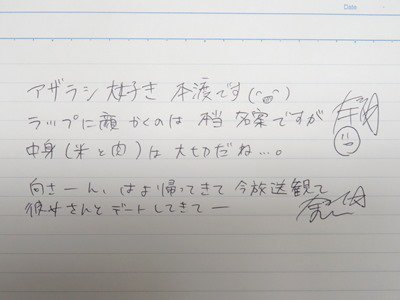 Date
アザラシ 大好き 本渡です(^ω^)
ラップに顔かくのは 本当 名案ですが
中身(米と肉)は大切だね…。
向さーん、はよ帰ってきて 今放送観て
彼女さんとデートしてきてー